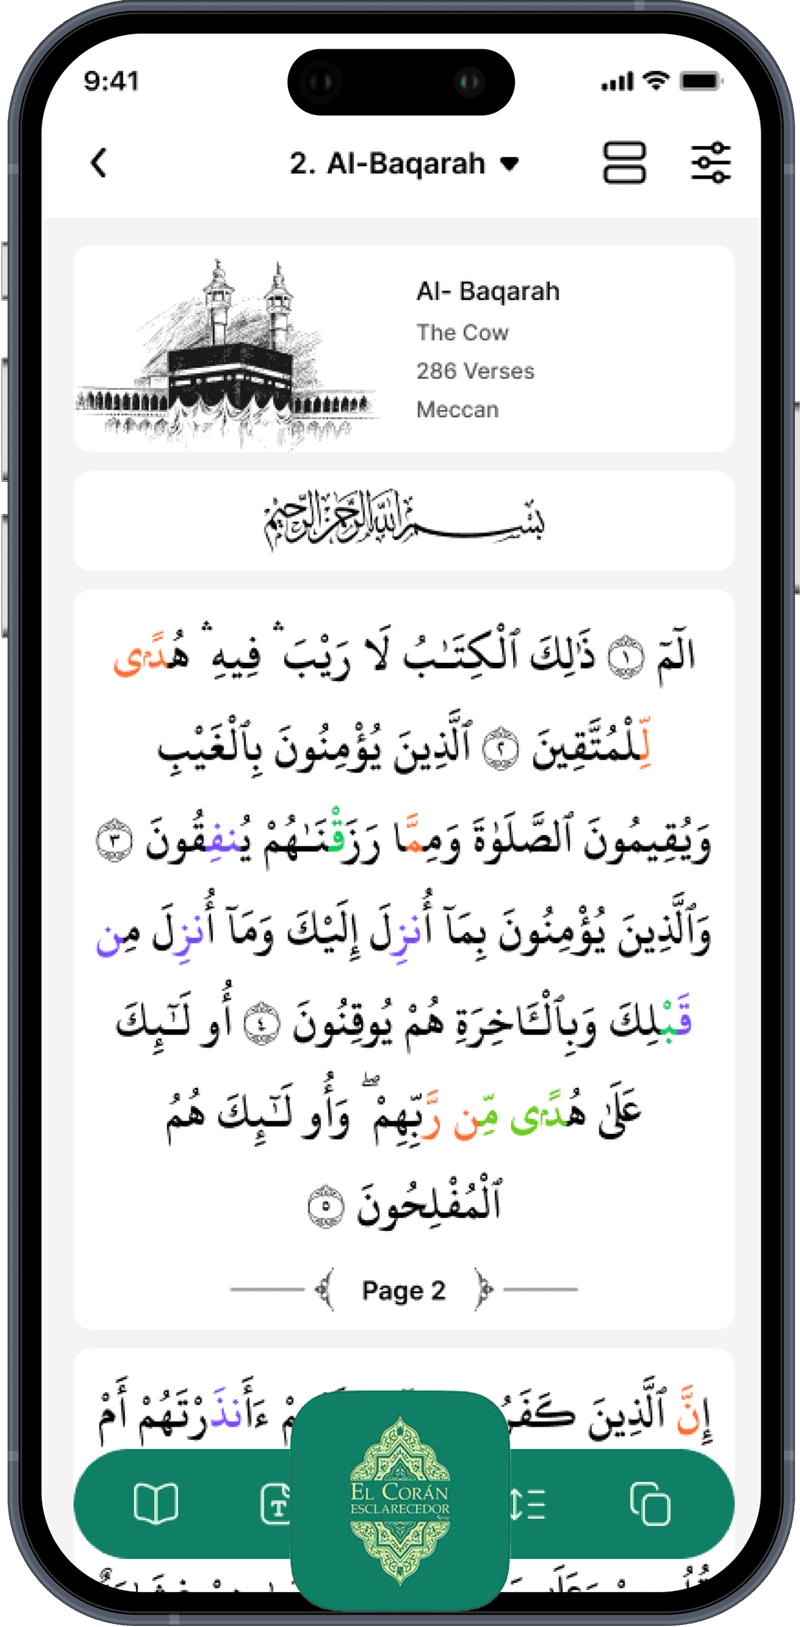 9:41
2. Al-Baqarah
Al- Baqarah
The Cow
286 Verses
Meccan
بِسْمِ ٱللَّهِ ٱلرَّحْمَٰنِ ٱلرَّحِيمِ
الٓمٓ ۝١ ذَٰلِكَ ٱلْكِتَـٰبُ لَا رَيْبَ ۛ فِيهِ ۛ هُدًۭى
لِّلْمُتَّقِينَ ۝٢ ٱلَّذِينَ يُؤْمِنُونَ بِٱلْغَيْبِ
وَيُقِيمُونَ ٱلصَّلَوٰةَ وَمِمَّا رَزَقْنَـٰهُمْ يُنفِقُونَ ۝٣
وَٱلَّذِينَ يُؤْمِنُونَ بِمَآ أُنزِلَ إِلَيْكَ وَمَآ أُنزِلَ مِن
قَبْلِكَ وَبِٱلْـَٔاخِرَةِ هُمْ يُوقِنُونَ ۝٤ أُو لَـٰٓئِكَ
عَلَىٰ هُدًۭى مِّن رَّبِّهِمْ ۖ وَأُو لَـٰٓئِكَ هُمُ
ٱلْمُفْلِحُونَ ۝٥
Page 2
إِنَّ ٱلَّذِينَ كَفَرُ ءَأَنذَرْتَهُمْ أَمْ
EL CORÁN
ESCLARECEDOR